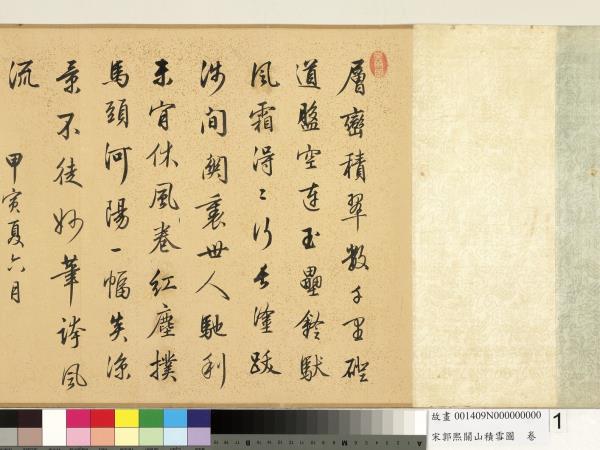 層巒積翠數千里磴
道盤空連玉壘鈴馱
風霜得〻行長塗跋
涉間關裏世人馳利
未肯休風卷紅塵撲
馬頭河陽一幅炎涼
景不徒妙筆誇風
流
甲寅夏六月
故畫 001409N000000000
宋郭熙關山積雪圖 卷
1